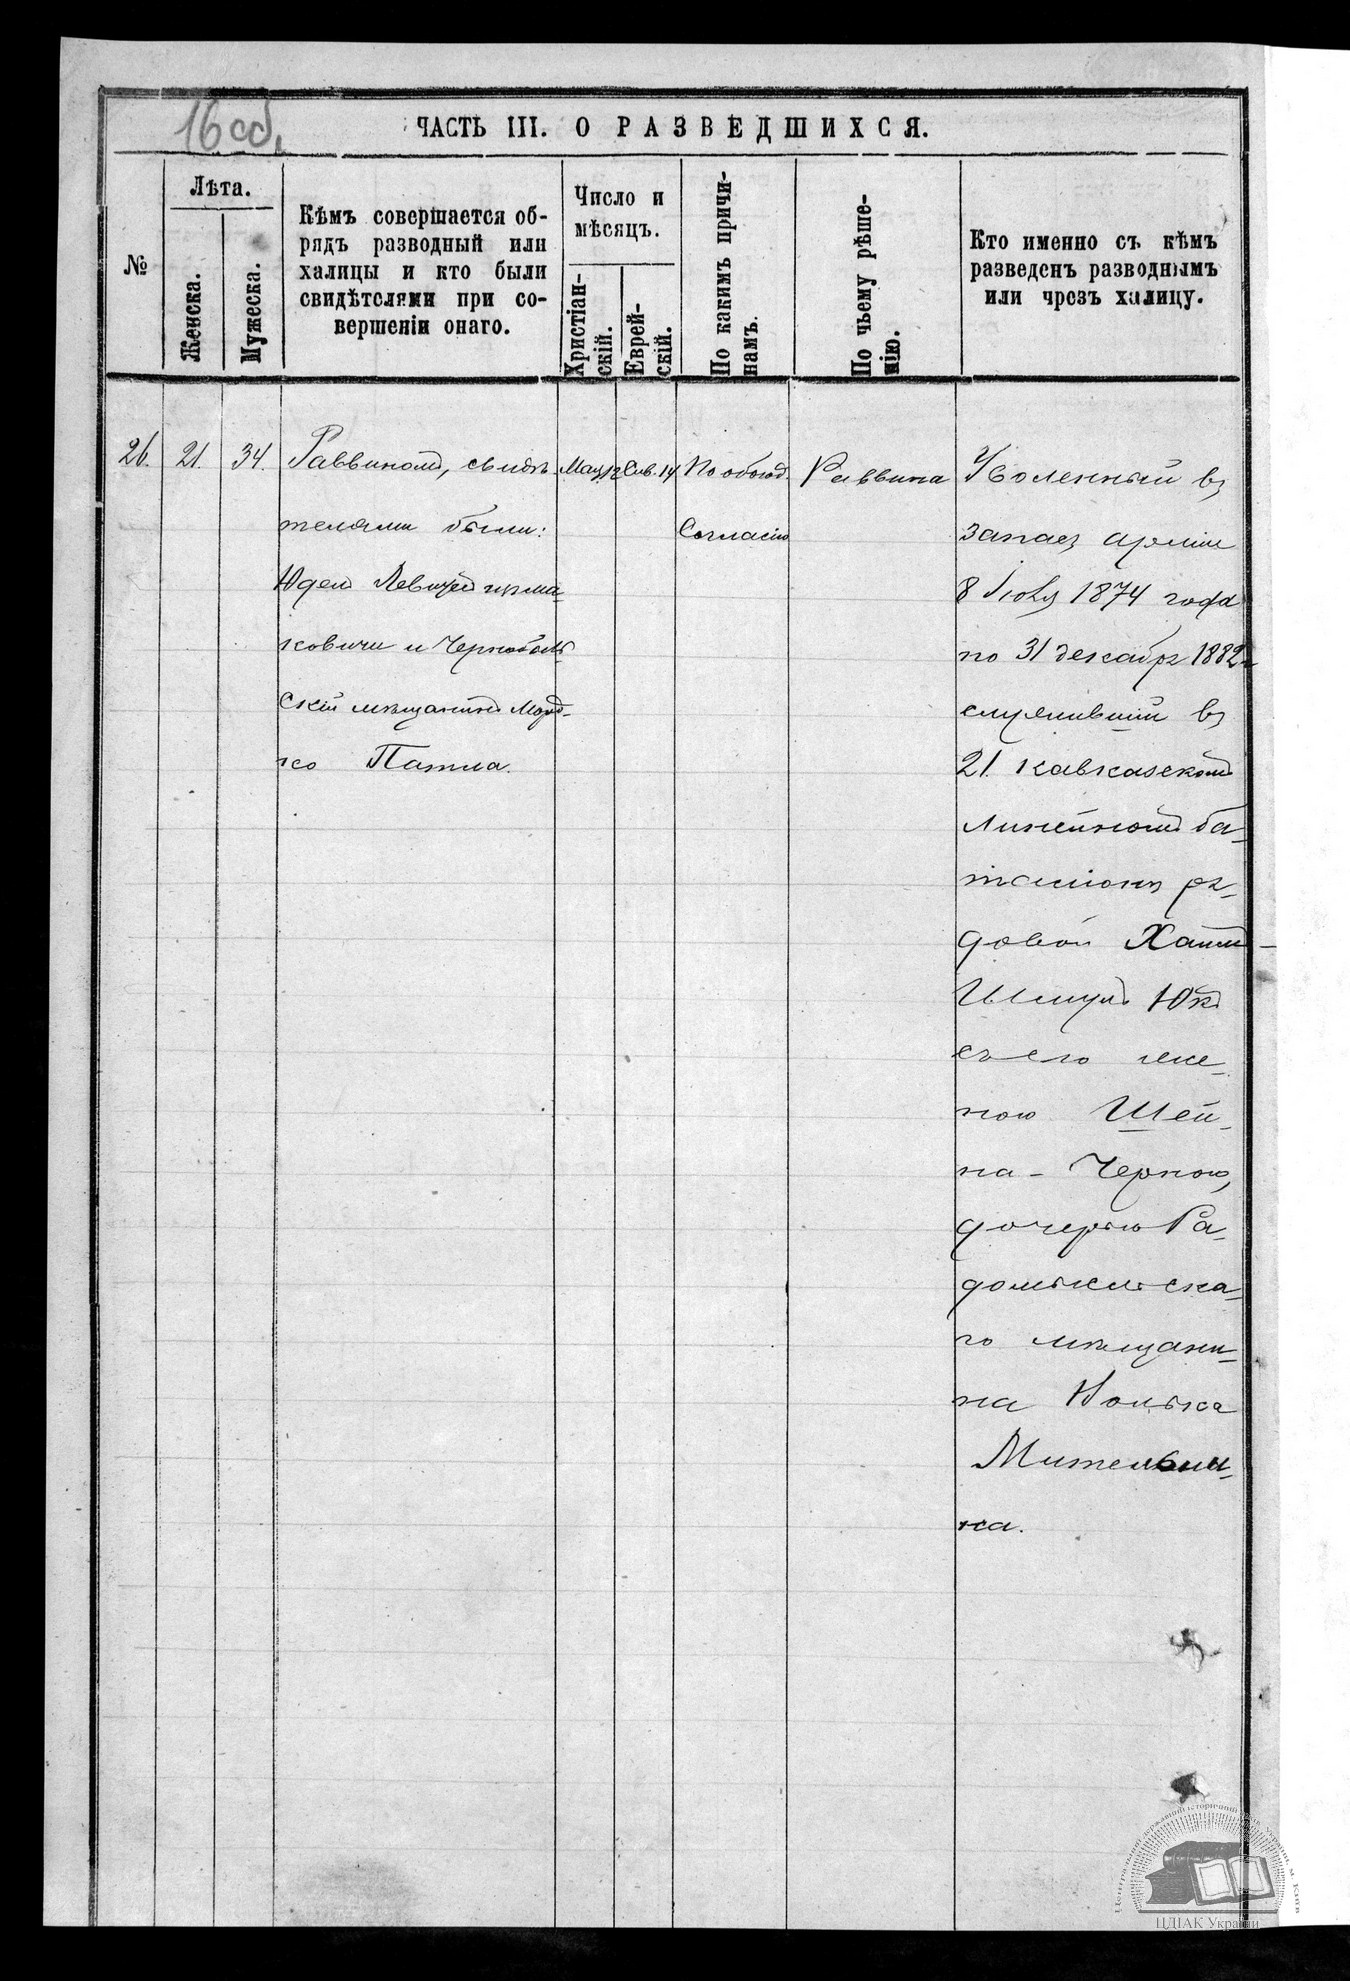 16 об.
ЧАСТЬ III. О РАЗВЕДШИХСЯ.
№
Лѣта.
Женска.
Мужеска.
Кѣмъ совершается об-
рядъ разводный или
халицы и кто были
свидѣтелями при со-
вершеніи онаго.
Число и
мѣсяцъ.
Христіан-
скій.
Еврей-
скій.
По какимъ причи-
намъ.
По чьему рѣше-
нію.
Кто именно съ кѣмъ
разведенъ разводнымъ
или чрезъ халицу.
26. 21. 34.
Раввиномъ, свидѣ-
телями были:
Юдел
ковичи и Чернобыль-
скій мѣщанинъ Морд-
ко Патла.
Мая 12
Сив. 14
По обоюд.
Согласію
Раввина
Уволенный въ
запасъ арміи
8 Іюля 1874 года
по 31 декабря 1882 г
служившій въ
21 Кавказскомъ
Линейномъ ба-
таліону ря-
довой Хаимъ-
Шмулъ Юкъ
съ его же-
ною Шей-
на - Черною,
дочерью Ра-
домысльска-
го мѣщани-
на
Мительми-
ка.
ЦДІАК України